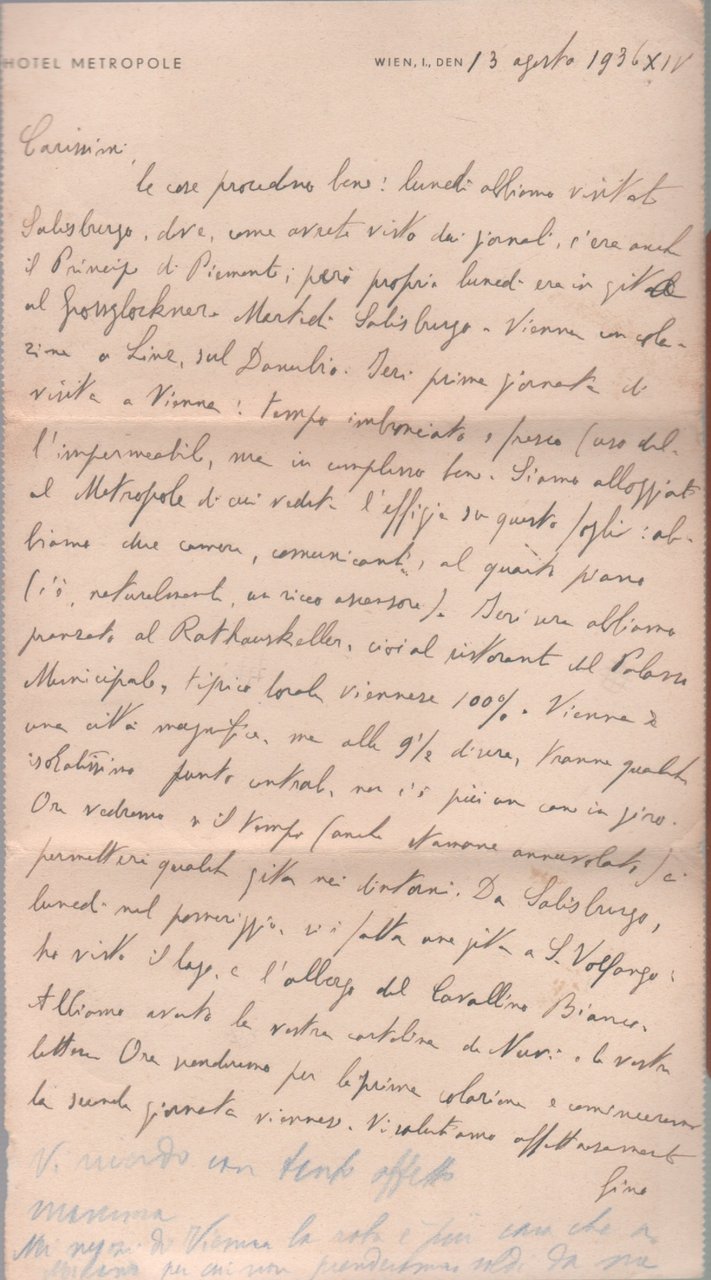 HOTEL METROPOLE
WIEN, I., DEN 13 agosto 1936 XIV
Carissimi,
le cose procedono bene: lunedì abbiamo visitato
Salisburgo, dove, come avrete visto dai giornali, c'era anche
il Principe di Piemonte; però proprio lunedì era in gita
al Grossglockner. Martedì Salisburgo - Vienna con cola-
zione a Linz, sul Danubio. Ieri prima giornata di
visita a Vienna: tempo imbronciato e fresco (uso del-
l'impermeabile, ma in complesso bene. Siamo alloggiati
al Metropole di cui vedete l'effigie su questo foglio: ab-
biamo due camere, comunicanti, al quarto piano
(c'è, naturalmente, un ricco ascensore). Ieri sera abbiamo
pranzato al Rathauskeller, cioè al ristorante del Palazzo
Municipale, tipico locale viennese 100%. Vienna è
una città magnifica, ma alle 9 1/2 di sera, tranne qualche
isolatissimo punto centrale, non c'è più un cane in giro.
Ora vedremo se il tempo (anche stamane annuvolato) ci
permetterà qualche gita nei dintorni. Da Salisburgo,
lunedì nel pomeriggio, si è fatta una gita a S. Volfango:
ho visto il lago e l'albergo del Cavallino Bianco.
Abbiamo avuto la vostra cartolina da Nervi e la vostra
lettera. Ora scenderemo per la prima colazione e cominceremo
la seconda giornata viennese. Vi salutiamo affettuosamente
Gino
Vi ricordo con tanto affetto
mamma
Nei negozi di Vienna la roba è più cara che a
Milano per cui non prenderemo